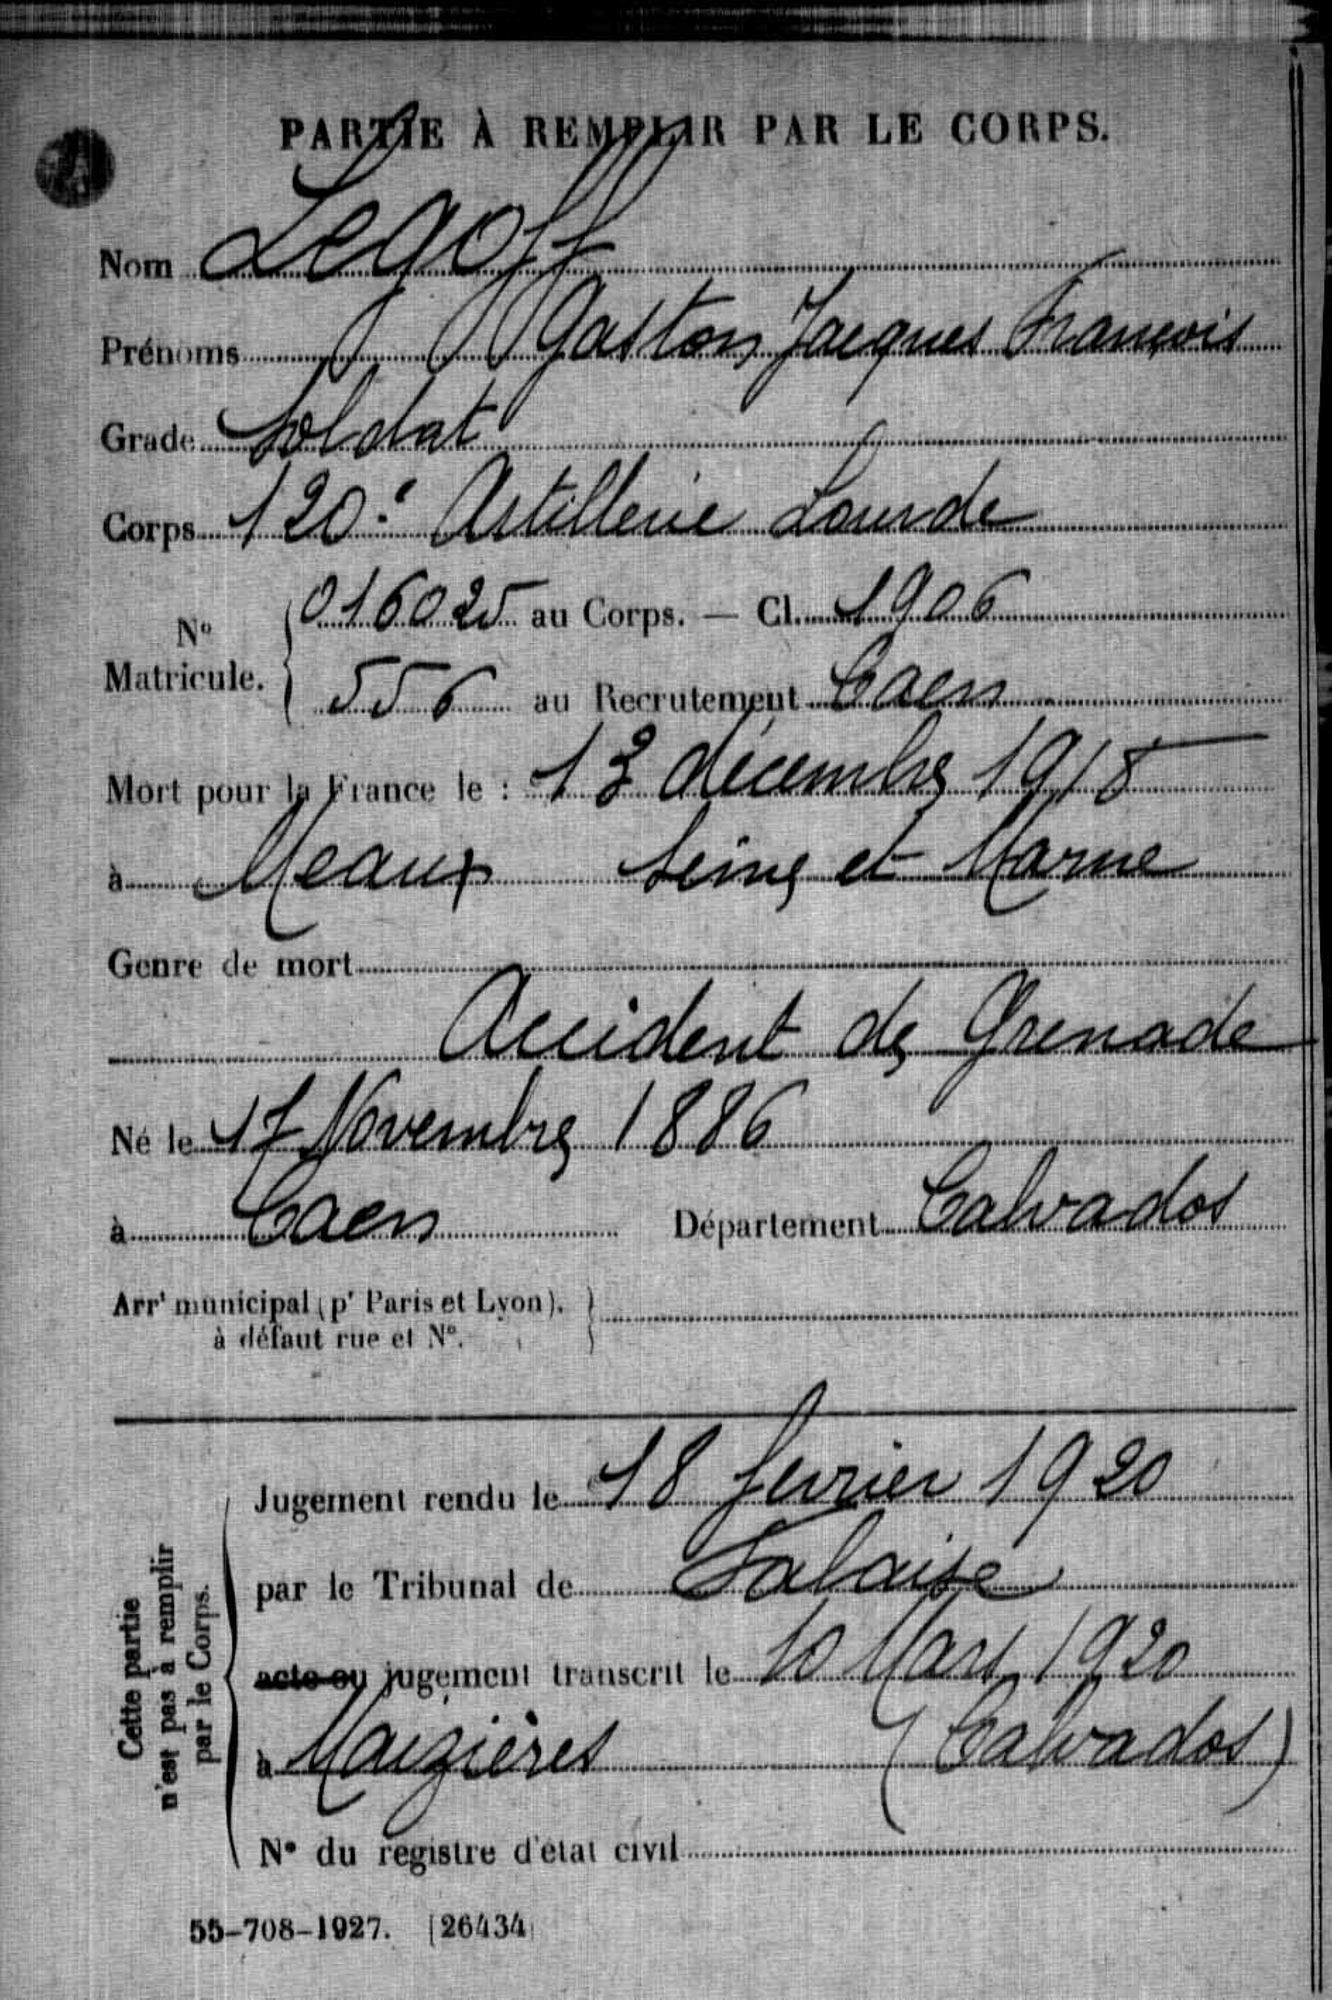 PARTIE À REMPLIR PAR LE CORPS.
Nom Legoff
Prénoms Gaston Jacques François
Grade Soldat
Corps 120e Artillerie Lourde
N° Matricule. 016025 au Corps. — Cl. 1906
556 au Recrutement Caen
Mort pour la France le : 13 décembre 1918
à Meaux Seine et Marne
Genre de mort
Accident de Grenade
Né le 17 Novembre 1886
à Caen Département Calvados
Arrt municipal (pr Paris et Lyon).
à défaut rue et N°.
Cette partie
n'est pas à remplir
par le Corps.
Jugement rendu le 18 février 1920
par le Tribunal de Falaise
acte ou jugement transcrit le 10 Mars 1920
à Maizières (Calvados)
N° du registre d'état civil
55-708-1927. [26434]